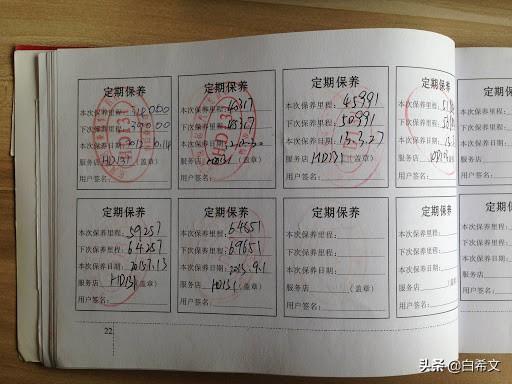 定期保养
本次保养里程:
下次保养里程:
本次保养日期:
服务店 HD131 (盖章)
用户签名:
定期保养
本次保养里程: 40317
下次保养里程: 45317
本次保养日期:
服务店 HD131 (盖章)
用户签名:
定期保养
本次保养里程: 45991
下次保养里程: 50991
本次保养日期: 13.3.27
服务店 HD131 (盖章)
用户签名:
定期保养
本次保养里程:
下次保养里程:
本次保养日期:
服务店
用户签名:
定期保养
本次保养里程: 59257
下次保养里程: 64257
本次保养日期: 2013.7.13
服务店 HD131 (盖章)
用户签名:
定期保养
本次保养里程: 64651
下次保养里程: 69651
本次保养日期: 2013.9.1
服务店 HD131 (盖章)
用户签名:
定期保养
本次保养里程:
下次保养里程:
本次保养日期:
服务店 (盖章)
用户签名:
定期保养
本次保养里程:
下次保养里程:
本次保养日期:
服务店 (盖章)
用户签名:
22
头条 @白希文